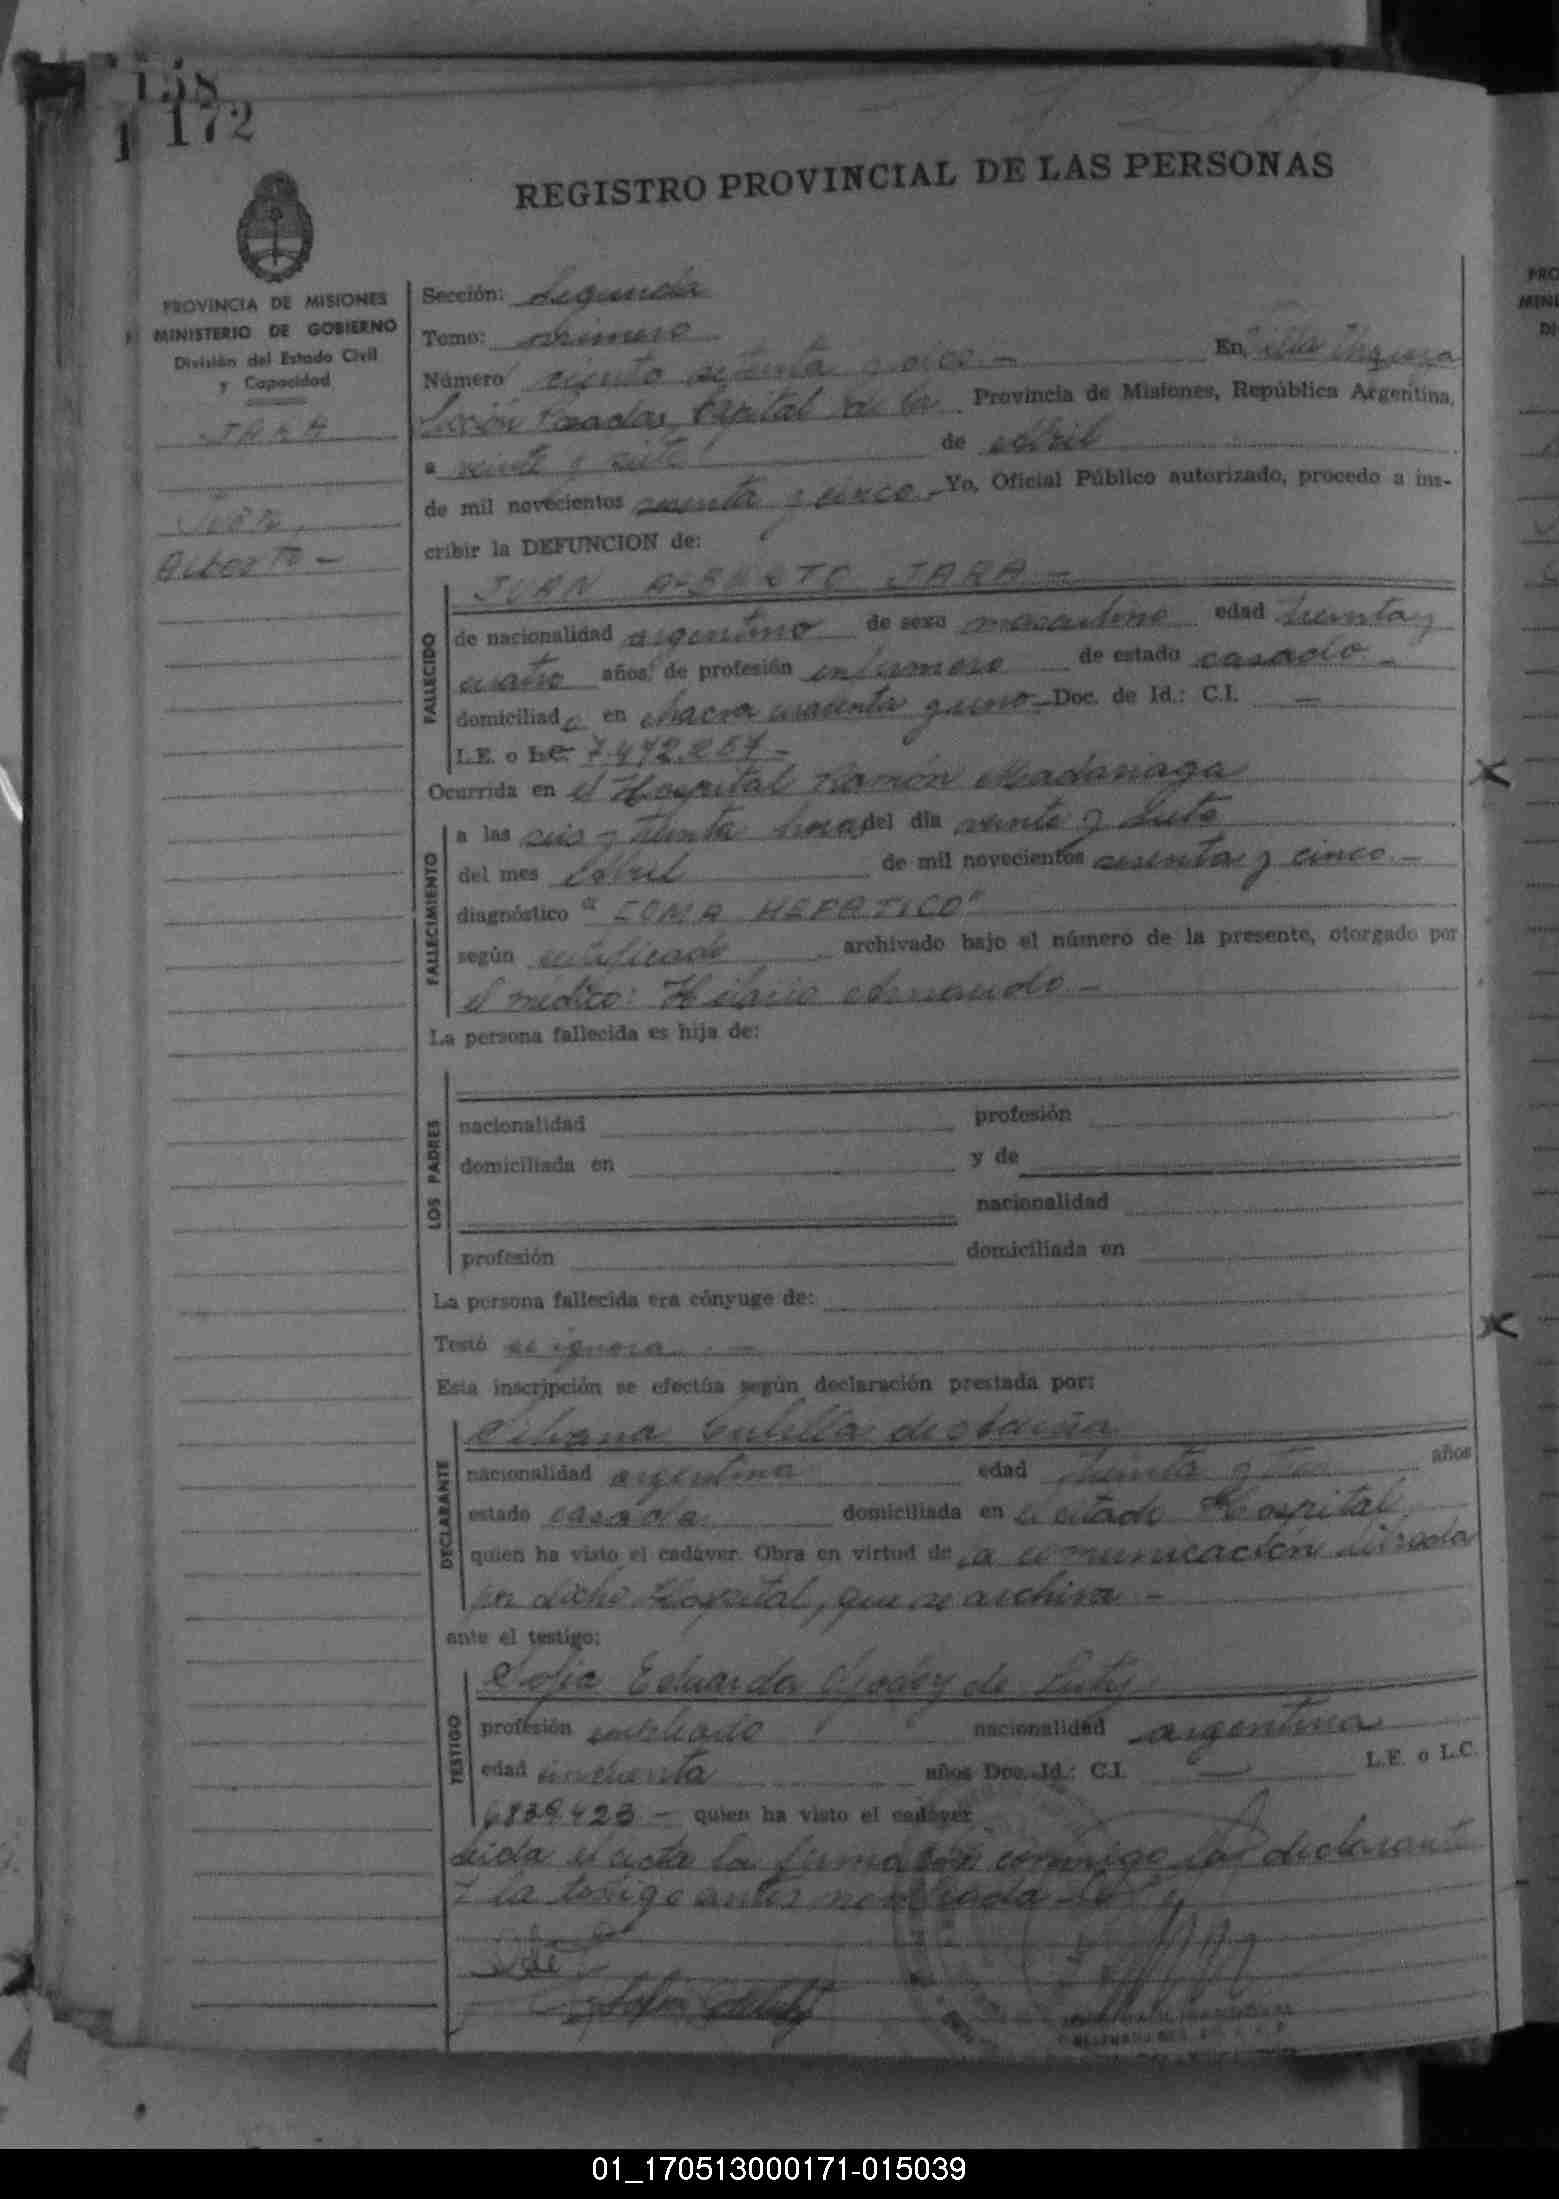 158
1 172
REGISTRO PROVINCIAL DE LAS PERSONAS
PROVINCIA DE MISIONES
MINISTERIO DE GOBIERNO
División del Estado Civil
y Capacidad
JARA
Juan
Alberto -
Sección: Segunda
Tomo: Primero
Número ciento setenta y dos.- En, Villa
Sección Posadas, Capital de la Provincia de Misiones, República Argentina,
a veinte y siete de Abril
de mil novecientos sesenta y cinco.- Yo, Oficial Público autorizado, procedo a ins-
cribir la DEFUNCION de:
FALLECIDO
JUAN ALBERTO JARA -
de nacionalidad argentino de sexo masculino edad treinta y
cuatro años, de profesión enfermero de estado casado.-
domiciliado en chacra cuarenta y uno- Doc. de Id.: C.I. —
L.E. o 7.472.257-
Ocurrida en el Hospital Ramón Madariaga
FALLECIMIENTO
a las seis y treinta horas del día veinte y siete
del mes Abril de mil novecientos sesenta y cinco.-
diagnóstico "COMA HEPATICO"
según certificado archivado bajo el número de la presente, otorgado por
el médico: Hilario -
La persona fallecida es hija de:
LOS PADRES
nacionalidad profesión
domiciliada en y de
nacionalidad
profesión domiciliada en
La persona fallecida era cónyuge de:
Testó se ignora. -
Esta inscripción se efectúa según declaración prestada por:
DECLARANTE
Silvana Cubilla de
nacionalidad argentina edad treinta y tres años
estado casada domiciliada en el citado Hospital
quien ha visto el cadáver. Obra en virtud de la comunicación librada
por dicho Hospital, que se archiva -
ante el testigo:
TESTIGO
Sofia Eduarda Godoy de
profesión empleado nacionalidad argentina
edad cincuenta años Doc. Id.: C.I. — L.E. o L.C.
6839.423.- quien ha visto el cadáver
Leida el acta la firman conmigo la declarante
y la testigo antes nombrada
01_170513000171-015039